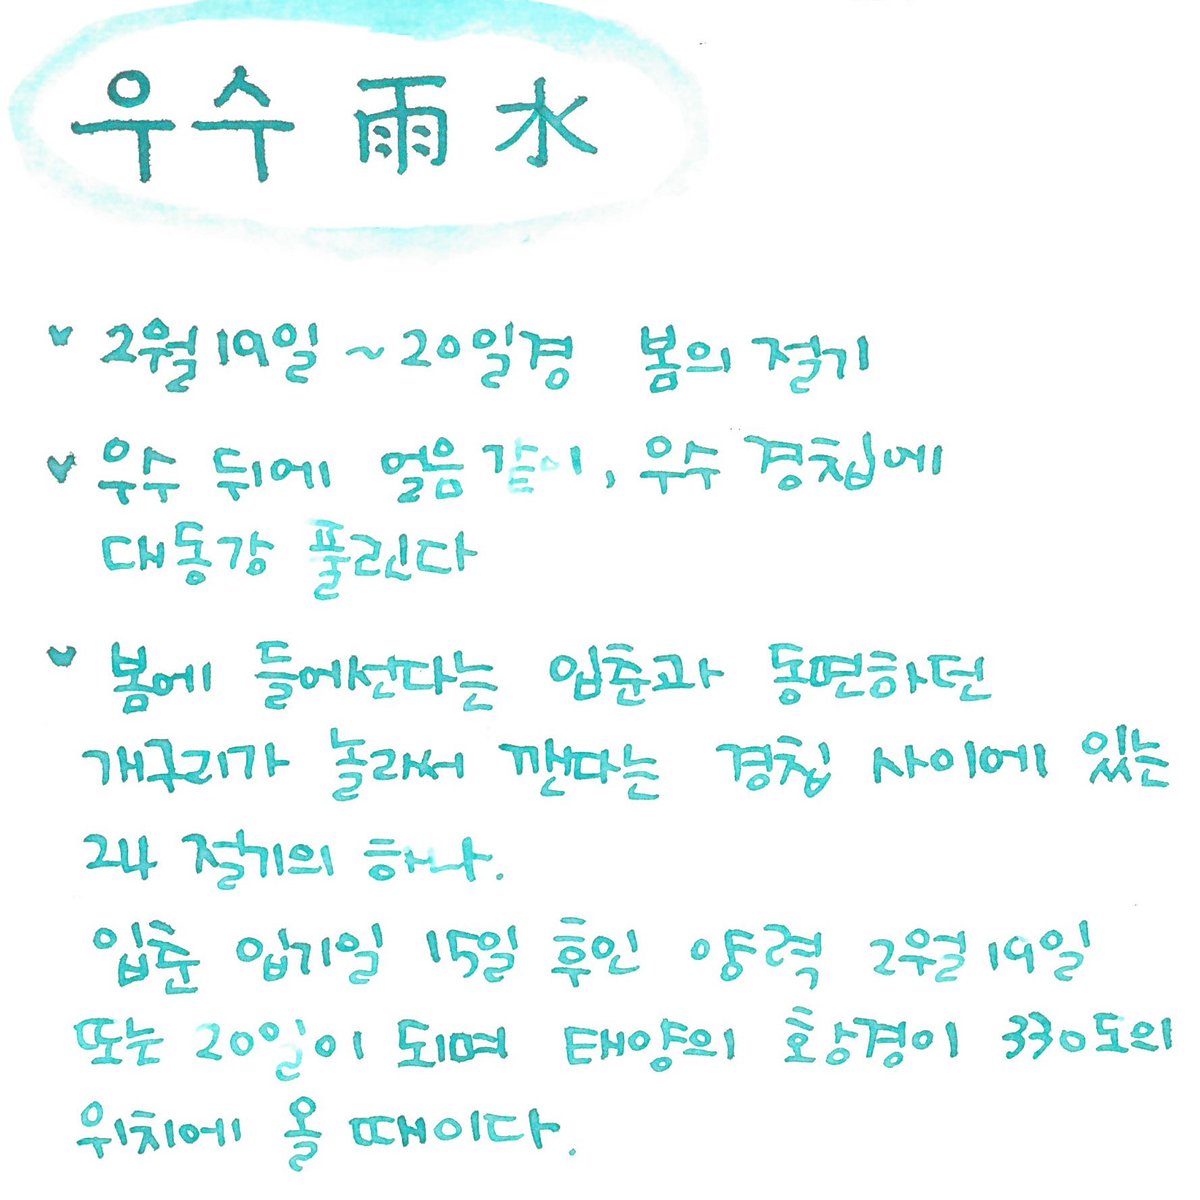 우수 雨水
2월 19일 ~ 20일경 봄의 절기
우수 뒤에 얼음같이, 우수 경칩에
대동강 풀린다
봄에 들어선다는 입춘과 동면하던
개구리가 놀라서 깬다는 경칩 사이에 있는
24 절기의 하나.
입춘 입기일 15일 후인 양력 2월 19일
또는 20일이 되며 태양의 황경이 330도의
위치에 올 때이다.